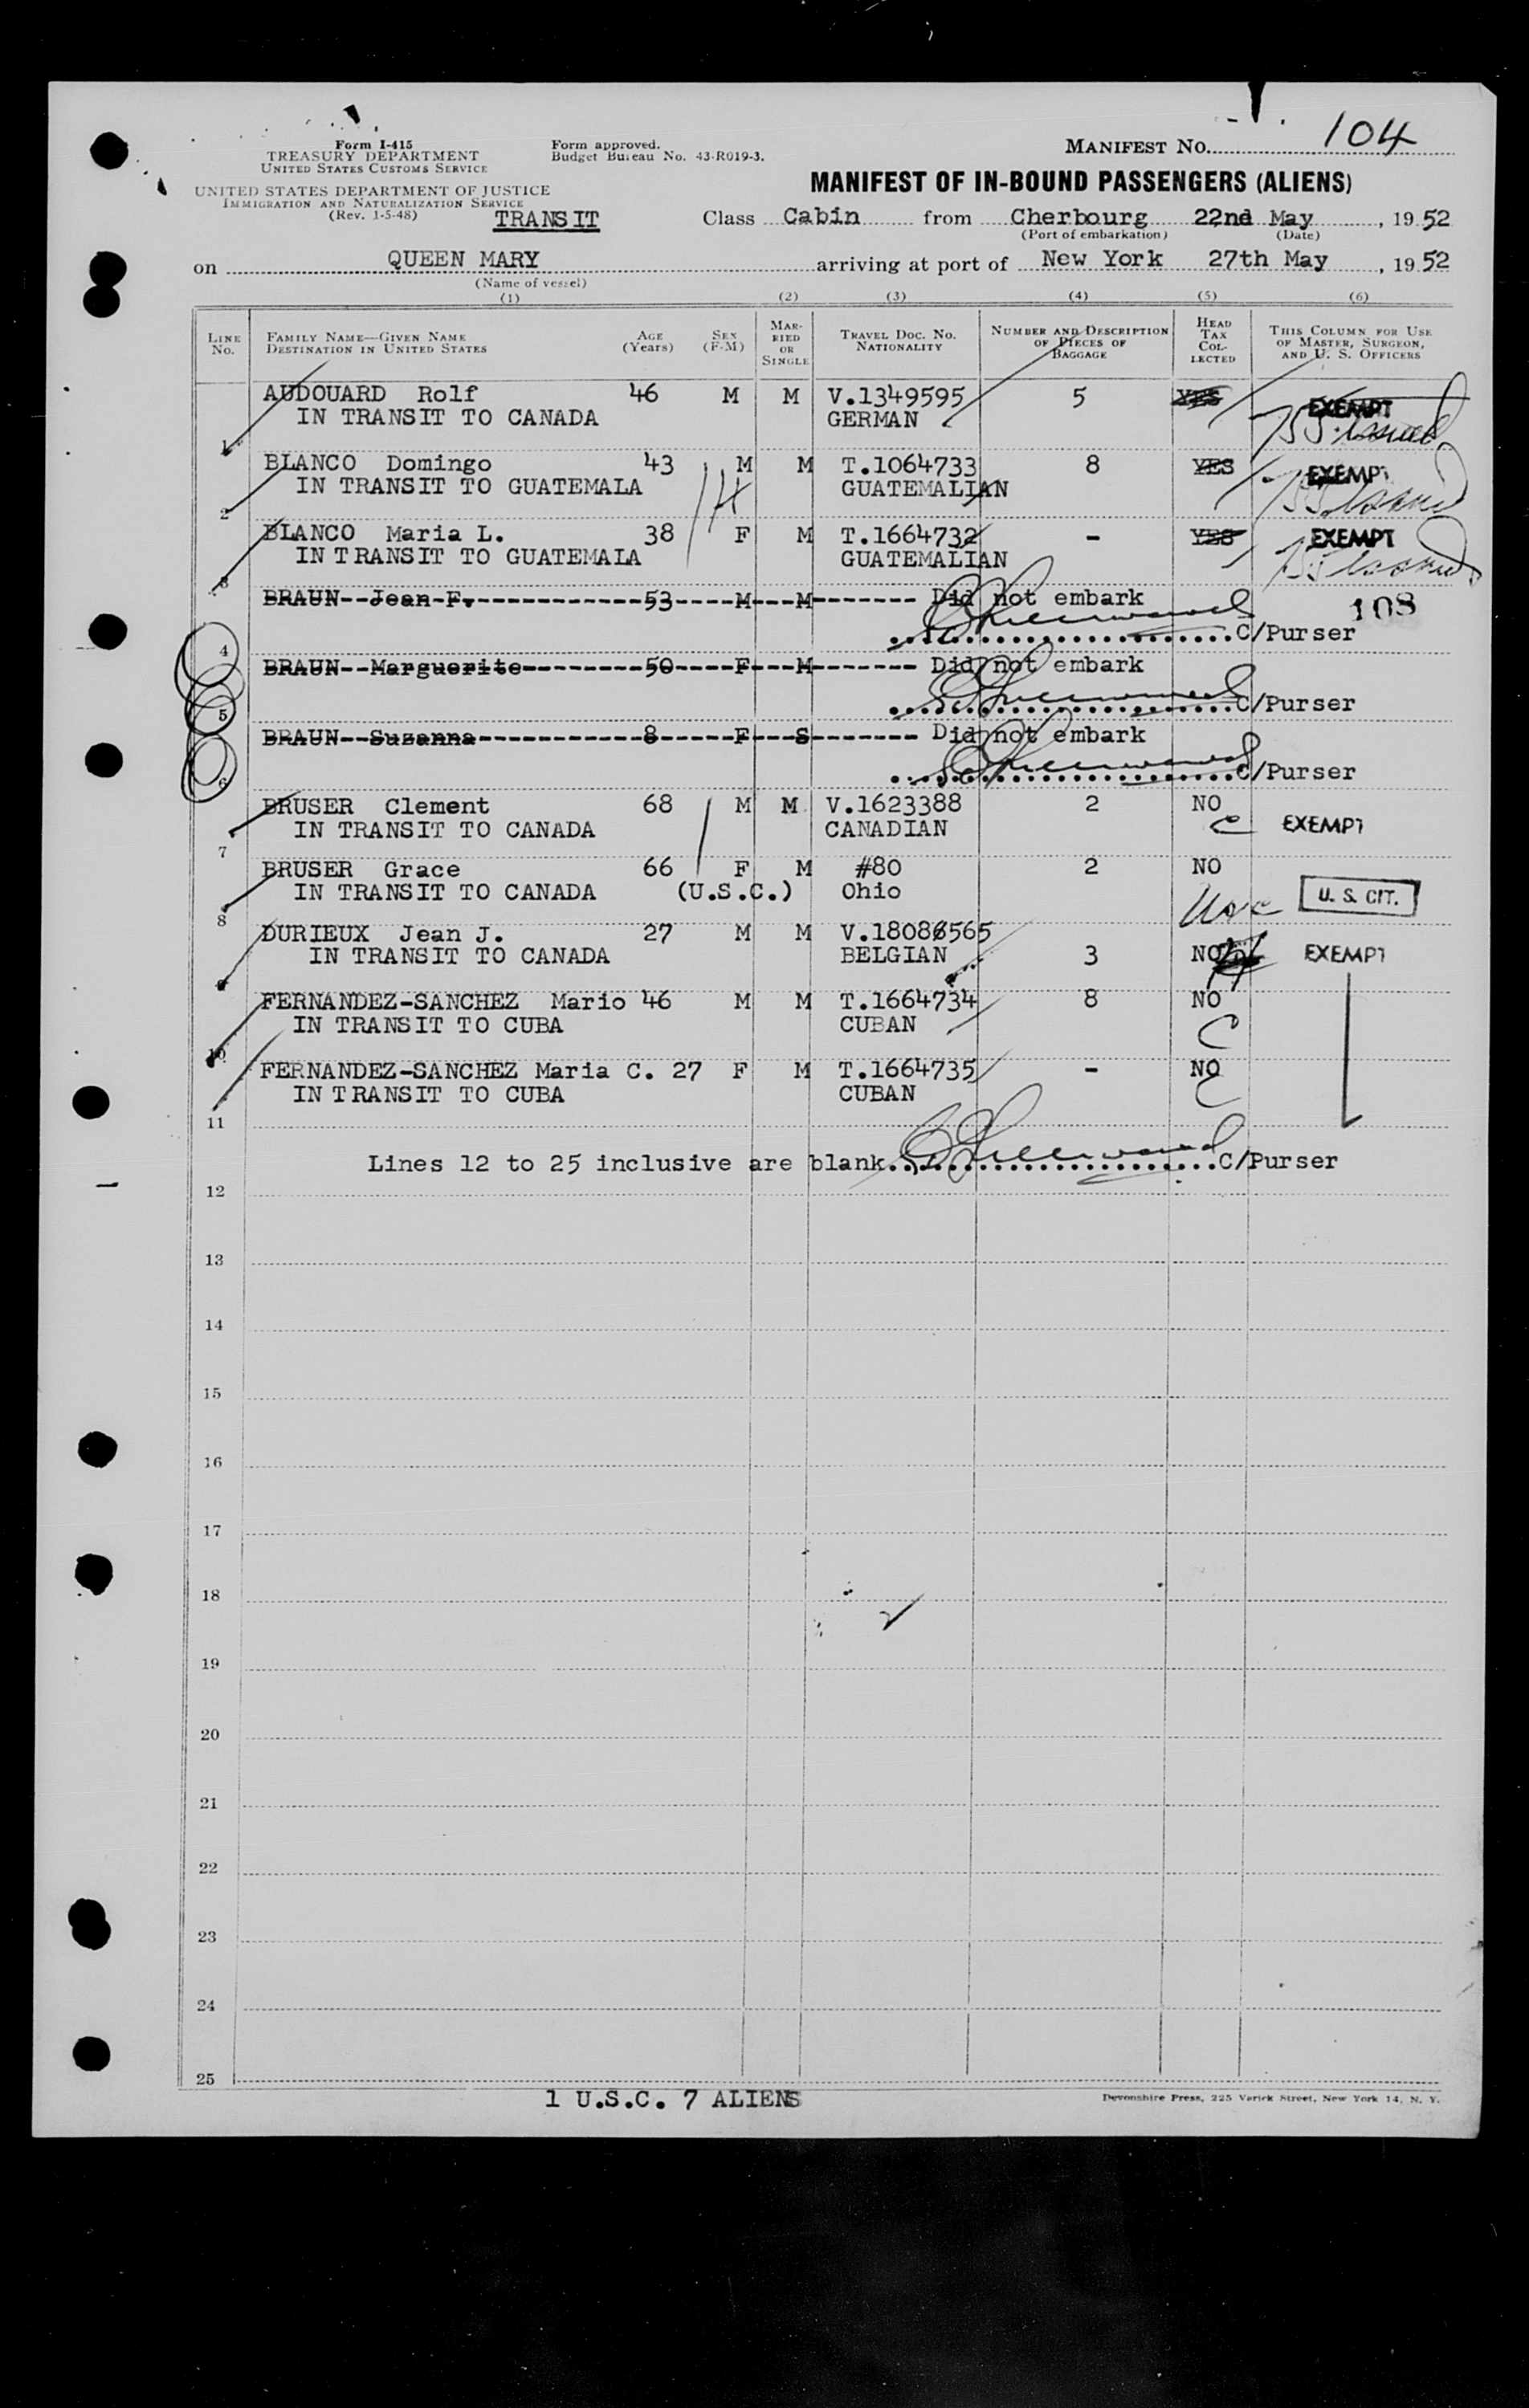 104
Form I-415
TREASURY DEPARTMENT
UNITED STATES CUSTOMS SERVICE
Form approved.
Budget Bureau No. 43-R019-3.
MANIFEST NO. 104
UNITED STATES DEPARTMENT OF JUSTICE
IMMIGRATION AND NATURALIZATION SERVICE
(Rev. 1-5-48)
TRANSIT
MANIFEST OF IN-BOUND PASSENGERS (ALIENS)
Class Cabin from Cherbourg 22nd May, 1952
(Port of embarkation) (Date)
on QUEEN MARY arriving at port of New York 27th May, 1952
(Name of vessel)
(1) (2) (3) (4) (5) (6)
LINE NO. FAMILY NAME—GIVEN NAME DESTINATION IN UNITED STATES AGE (Years) SEX (F-M) MARRIED OR SINGLE TRAVEL DOC. NO. NATIONALITY NUMBER AND DESCRIPTION OF PIECES OF BAGGAGE HEAD TAX COLLECTED THIS COLUMN FOR USE OF MASTER, SURGEON, AND U. S. OFFICERS
AUDOUARD Rolf 46 M M V.1349595 5 YES EXEMPT
1 IN TRANSIT TO CANADA GERMAN issued
BLANCO Domingo 43 M M T.1064733 8 YES EXEMPT
2 IN TRANSIT TO GUATEMALA GUATEMALIAN issued
BLANCO Maria L. 38 F M T.1664732 - YES EXEMPT
3 IN TRANSIT TO GUATEMALA GUATEMALIAN issued
BRAUN--Jean-F.------------53----M---M------- Did not embark 108
4 C/Purser
BRAUN--Marguerite---------50----F---M------- Did not embark
5 C/Purser
BRAUN--Susanna------------8-----F---S------- Did not embark
6 C/Purser
BRUSER Clement 68 M M V.1623388 2 NO
7 IN TRANSIT TO CANADA CANADIAN C EXEMPT
BRUSER Grace 66 F M #80 2 NO
8 IN TRANSIT TO CANADA (U.S.C.) Ohio USC U. S. CIT.
DURIEUX Jean J. 27 M M V.18086565
9 IN TRANSIT TO CANADA BELGIAN 3 NO EXEMPT
FERNANDEZ-SANCHEZ Mario 46 M M T.1664734 8 NO
10 IN TRANSIT TO CUBA CUBAN C
FERNANDEZ-SANCHEZ Maria C. 27 F M T.1664735 - NO
11 IN TRANSIT TO CUBA CUBAN C
Lines 12 to 25 inclusive are blank. C/Purser
12
13
14
15
16
17
18
19
20
21
22
23
24
25
1 U.S.C. 7 ALIENS
Devonshire Press, 225 Varick Street, New York 14, N. Y.